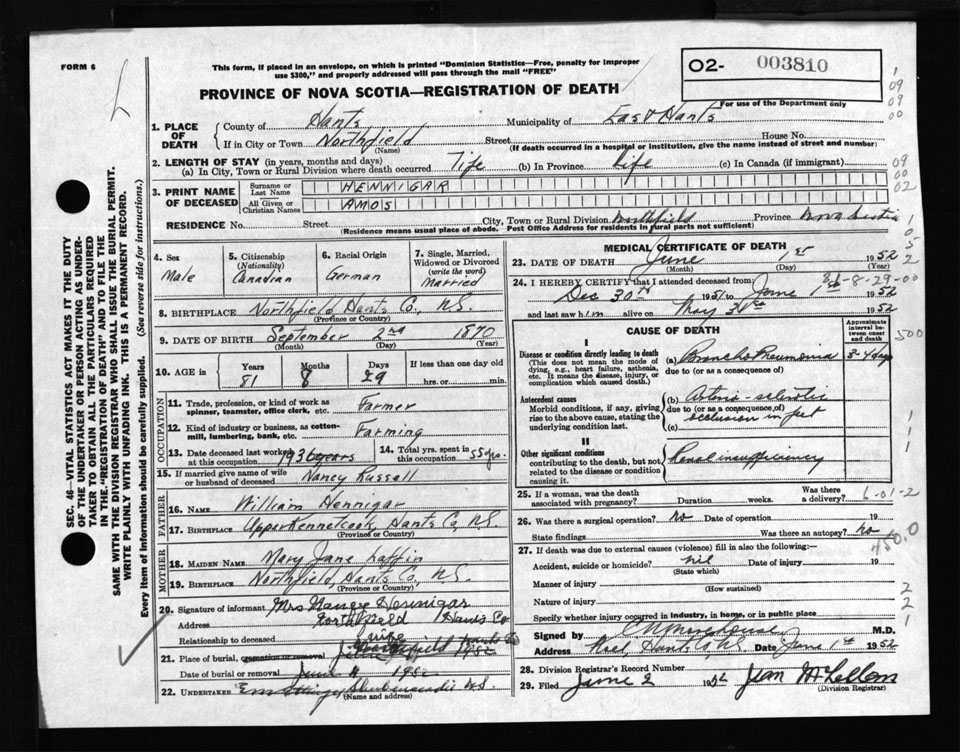 FORM 6
This form, if placed in an envelope, on which is printed "Dominion Statistics—Free, penalty for improper
use $300," and properly addressed will pass through the mail "FREE"
O2- 003810
PROVINCE OF NOVA SCOTIA—REGISTRATION OF DEATH
For use of the Department only
1. PLACE OF DEATH
County of Hants Municipality of East Hants
If in City or Town Northfield Street House No.
(Name) (If death occurred in a hospital or institution, give the name instead of street and number)
2. LENGTH OF STAY (in years, months and days)
(a) In City, Town or Rural Division where death occurred Life (b) In Province Life (c) In Canada (if immigrant)
3. PRINT NAME OF DECEASED
Surname or Last Name HENNIGAR
All Given or Christian Names AMOS
RESIDENCE No. Street City, Town or Rural Division Northfield Province Nova Scotia
(Residence means usual place of abode. Post Office Address for residents in rural parts not sufficient)
4. Sex
Male
5. Citizenship
(Nationality)
Canadian
6. Racial Origin
German
7. Single, Married,
Widowed or Divorced
(write the word)
Married
8. BIRTHPLACE Northfield Hants Co., N.S.
(Province or Country)
9. DATE OF BIRTH September 2nd 1870
(Month) (Day) (Year)
10. AGE in Years Months Days If less than one day
81 8 29 hrs. or min.
OCCUPATION
11. Trade, profession, or kind of work as
spinner, teamster, office clerk, etc. Farmer
12. Kind of industry or business, as cotton-
mill, lumbering, bank, etc. Farming
13. Date deceased last worked
at this occupation 1936
14. Total years spent in
this occupation 55 yrs.
15. If married give name of wife
or husband of deceased Nancy Russell
FATHER
16. NAME William Hennigar
17. BIRTHPLACE Upper Kennetcook, Hants Co, N.S.
(Province or Country)
MOTHER
18. MAIDEN NAME Mary Jane Laffin
19. BIRTHPLACE Northfield, Hants Co., N.S.
(Province or Country)
20. Signature of informant Mrs Nancy Hennigar
Address Northfield Hants Co
Relationship to deceased wife
21. Place of burial, cremation or removal Northfield Hants Co
Date of burial or removal June 195
22. UNDERTAKER Shubenacadie N.S.
(Name and address)
MEDICAL CERTIFICATE OF DEATH
23. DATE OF DEATH June 1st 1952
(Month) (Day) (Year)
24. I HEREBY CERTIFY that I attended deceased from:
81-8-29-00
Dec 30th 1951 to June 1st 1952
and last saw him alive on May 1952
CAUSE OF DEATH
Approximate interval between onset and death
I
Disease or condition directly leading to death
(This does not mean the mode of
dying, e.g., heart failure, asthenia,
etc. It means the disease, injury, or
complication which caused death.)
(a) Broncho Pneumonia 3-4 days
due to (or as a consequence of)
Antecedent causes
Morbid conditions, if any, giving
rise to the above cause, stating the
underlying condition last.
(b) Arterio-sclerotic
due to (or as a consequence of)
occlusion in feet
II
Other significant conditions
contributing to the death, but not
related to the disease or condition
causing it.
Renal insufficiency
25. If a woman, was the death
associated with pregnancy? Duration weeks. Was there a delivery?
26. Was there a surgical operation? no Date of operation 19
State findings Was there an autopsy? no
27. If death was due to external causes (violence) fill in also the following:—
Accident, suicide or homicide? nil Date of injury 19
(State which)
Manner of injury
(How sustained)
Nature of injury
Specify whether injury occurred in industry, in home, or in public place
Signed by M.D.
Address Noel, Hants Co, N.S. Date June 1st 1952
28. Division Registrar's Record Number
29. Filed June 2 1952 Jean McLellan
(Division Registrar)
SEC. 46—VITAL STATISTICS ACT MAKES IT THE DUTY
OF THE UNDERTAKER OR PERSON ACTING AS UNDER-
TAKER TO OBTAIN ALL THE PARTICULARS REQUIRED
IN THE "REGISTRATION OF DEATH" AND TO FILE THE
SAME WITH THE DIVISION REGISTRAR WHO SHALL ISSUE THE BURIAL PERMIT.
WRITE PLAINLY WITH UNFADING INK. THIS IS A PERMANENT RECORD.
Every item of information should be carefully supplied. (See reverse side for instructions.)